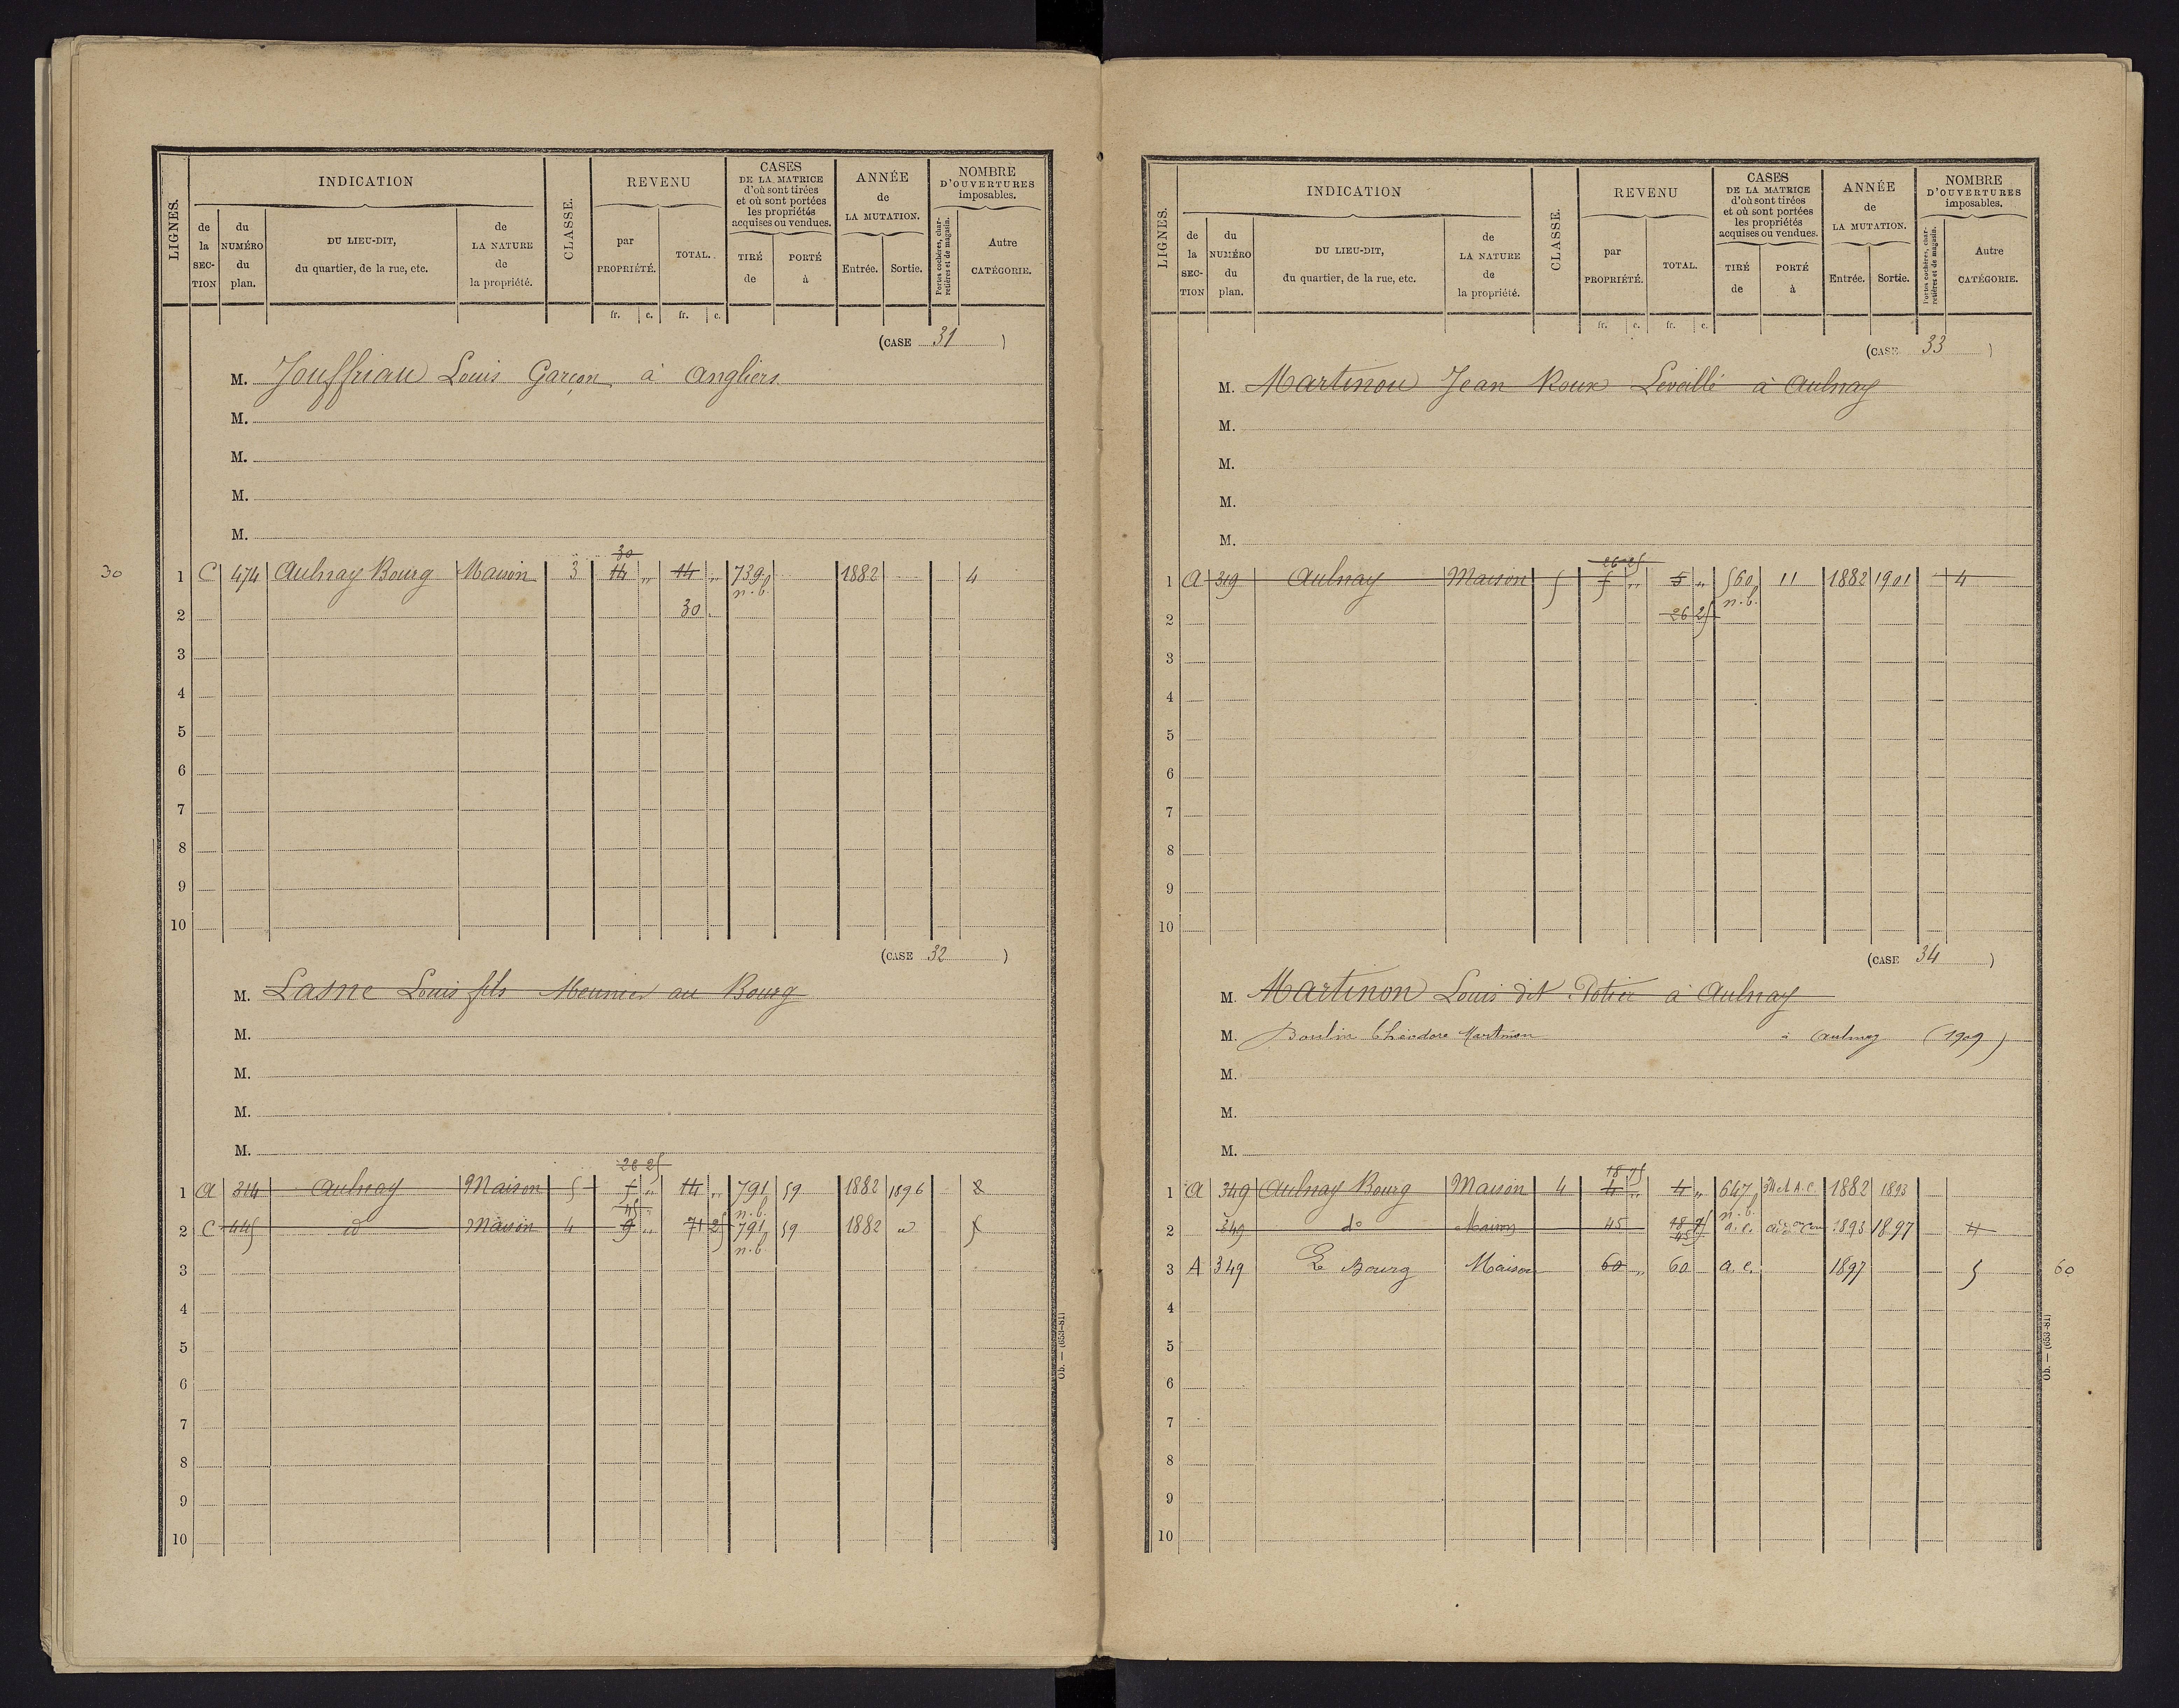 LIGNES.
INDICATION
de la SECTION
du NUMÉRO du plan.
DU LIEU-DIT, du quartier, de la rue, etc.
de LA NATURE de la propriété.
CLASSE.
REVENU
par PROPRIÉTÉ.
TOTAL.
CASES DE LA MATRICE d'où sont tirées et où sont portées les propriétés acquises ou vendues.
TIRÉ de
PORTÉ à
ANNÉE de LA MUTATION.
Entrée. Sortie.
NOMBRE D'OUVERTURES imposables.
Portes cochères, charretières et de magasin.
Autre CATÉGORIE.
fr. c. fr. c.
(CASE 31 )
M. Jouffriau Louis Garçon à Angliers
M.
M.
M.
M.
30
30 1 C 474 Aulnay Bourg Maison 3 14 " 14 " 739 1882 4
n.b.
2 30
3
4
5
6
7
8
9
10
(CASE 32 )
M. Lasne Louis fils Meunier au Bourg
M.
M.
M.
M.
26 25
1 A 314 Aulnay Maison 5 5 " 14 " 791 59 1882 1896 8
45 n.b.
2 C 445 id Maison 4 9 " 71 25 791 59 1882 id
n.b.
3
4
5
6
7
8
9
10
Ob. — (653-81)
LIGNES.
INDICATION
de la SECTION
du NUMÉRO du plan.
DU LIEU-DIT, du quartier, de la rue, etc.
de LA NATURE de la propriété.
CLASSE.
REVENU
par PROPRIÉTÉ.
TOTAL.
CASES DE LA MATRICE d'où sont tirées et où sont portées les propriétés acquises ou vendues.
TIRÉ de
PORTÉ à
ANNÉE de LA MUTATION.
Entrée. Sortie.
NOMBRE D'OUVERTURES imposables.
Portes cochères, charretières et de magasin.
Autre CATÉGORIE.
fr. c. fr. c.
(CASE 33 )
M. Martinon Jean Roux Leveillé à Aulnay
M.
M.
M.
M.
26 25
1 A 319 Aulnay Maison 5 5 " 5 " 560 11 1882 1901 4
n.b.
2 26 25
3
4
5
6
7
8
9
10
(CASE 34 )
M. Martinon Louis dit Potier à Aulnay
M. Boulin Théodore Martinon à Aulnay (1909)
M.
M.
M.
18 75
1 A 349 Aulnay Bourg Maison 4 4 " 4 " 647 1882 1893
n.b.
2 349 do Maison 45 18 75 a.c. 1893 1897 4
45
3 A 349 Le Bourg Maison 60 " 60 a.c. 1897 5 60
4
5
6
7
8
9
10
Ob. — (653-81)